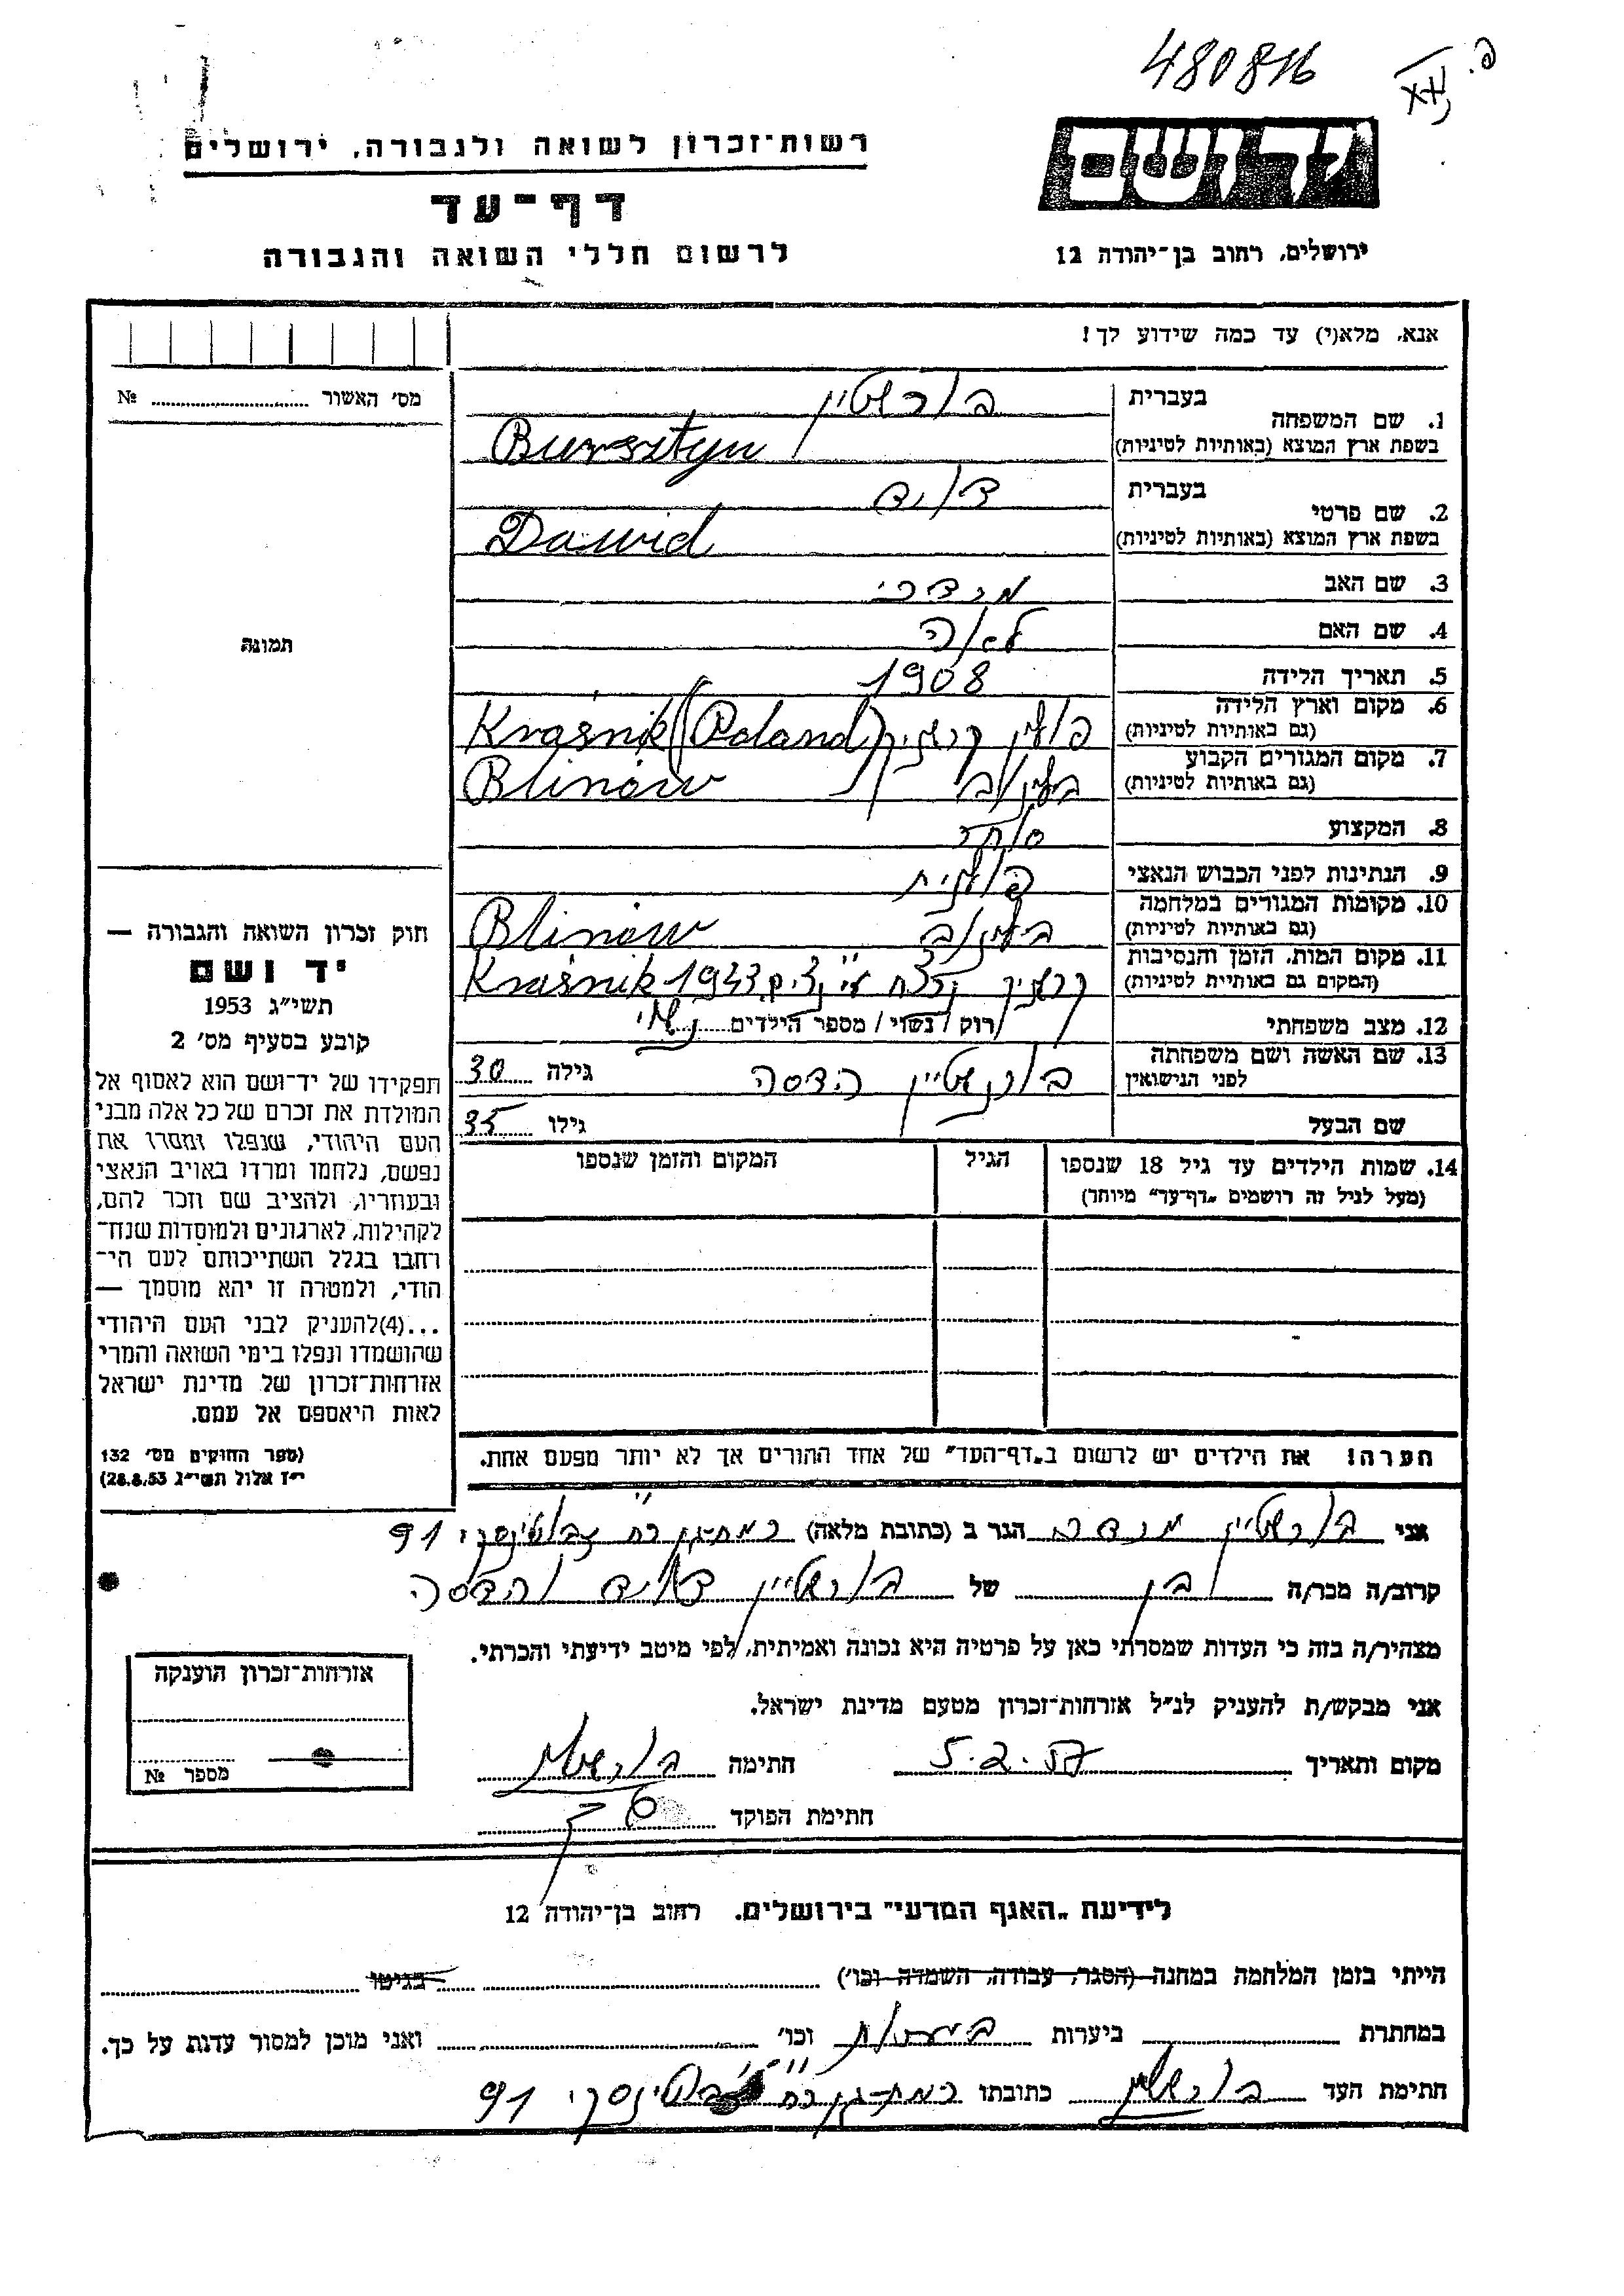 480816
רשות־זכרון לשואה ולגבורה, ירושלים
דף־עד
לרשום חללי השואה והגבורה
יד ושם
ירושלים, רחוב בן־יהודה 12
אנא, מלא(י) עד כמה שידוע לך!
מס׳ האשור № 
1. שם המשפחה
בעברית בורשטין
בשפת ארץ המוצא (באותיות לטיניות) Bursztyn
2. שם פרטי
בעברית דויד
בשפת ארץ המוצא (באותיות לטיניות) Dawid
3. שם האב מרדכי
4. שם האם לאה
5. תאריך הלידה 1908
6. מקום וארץ הלידה (גם באותיות לטיניות) פולין קרשניק Kraśnik (Poland)
7. מקום המגורים הקבוע (גם באותיות לטיניות) בלינוב Blinów
8. המקצוע סוחר
9. הנתינות לפני הכבוש הנאצי פולנית
10. מקומות המגורים במלחמה (גם באותיות לטיניות) בלינוב Blinów
11. מקום המות, הזמן והנסיבות (המקום גם באותיות לטיניות) קרשניק נרצח ע״י Kraśnik 1943
12. מצב משפחתי רוק / נשוי / מספר הילדים נשוי
13. שם האשה ושם משפחתה לפני הנישואין בורנשטיין הדסה גילה 30
שם הבעל גילו 35
14. שמות הילדים עד גיל 18 שנספו (מעל לגיל זה רושמים „דף־עד״ מיוחד)
הגיל
המקום והזמן שנספו
הערה! את הילדים יש לרשום ב„דף־העד״ של אחד ההורים אך לא יותר מפעם אחת.
תמונה
חוק זכרון השואה והגבורה —
יד ושם
תשי״ג 1953
קובע בסעיף מס׳ 2
תפקידו של יד־ושם הוא לאסוף אל
המולדת את זכרם של כל אלה מבני
העם היהודי, שנפלו ומסרו את
נפשם, נלחמו ומרדו באויב הנאצי
ובעוזריו, ולהציב שם וזכר להם,
לקהילות, לארגונים ולמוסדות שנח־
רחבו בגלל השתייכותם לעם הי־
הודי, ולמטרה זו יהא מוסמך —
...(4)להעניק לבני העם היהודי
שהושמדו ונפלו בימי השואה והמרי
אזרחות־זכרון של מדינת ישראל
לאות היאספם אל עמם.
(ספר החוקים מס׳ 132
י״ז אלול תשי״ג 28.8.53)
אני בורשטיין מרדכי הגר ב (כתובת מלאה) רמת־גן רח׳ ז׳בוטינסקי 91
קרוב/ה מכר/ה בן של בורשטיין דויד והדסה
מצהיר/ה בזה כי העדות שמסרתי כאן על פרטיה היא נכונה ואמיתית, לפי מיטב ידיעתי והכרתי.
אני מבקש/ת להעניק לנ״ל אזרחות־זכרון מטעם מדינת ישראל.
מקום ותאריך 5.2.57 חתימה בורשטין
חתימת הפוקד
אזרחות־זכרון הוענקה
מספר №
לידיעת „האגף המדעי״ בירושלים. רחוב בן־יהודה 12
הייתי בזמן המלחמה במחנה (הסגר, עבודה, השמדה וכו׳) בגיטו
במחתרת ביערות וכו׳ ואני מוכן למסור עדות על כך.
חתימת העד בורשטין כתובתו רמת־גן רח׳ ז׳בוטינסקי 91